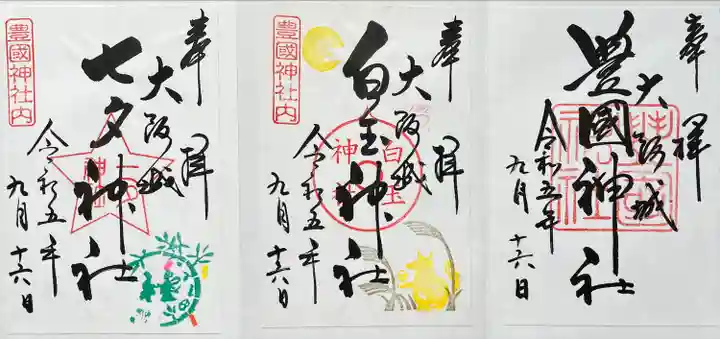 奉拝
大阪城
七夕神社
令和五年
九月十六日
豊國神社内
奉拝
大阪城
白玉神社
令和五年
九月十六日
豊國神社内
白玉
神社
奉拝
大阪城
豊國神社
令和五年
九月十六日